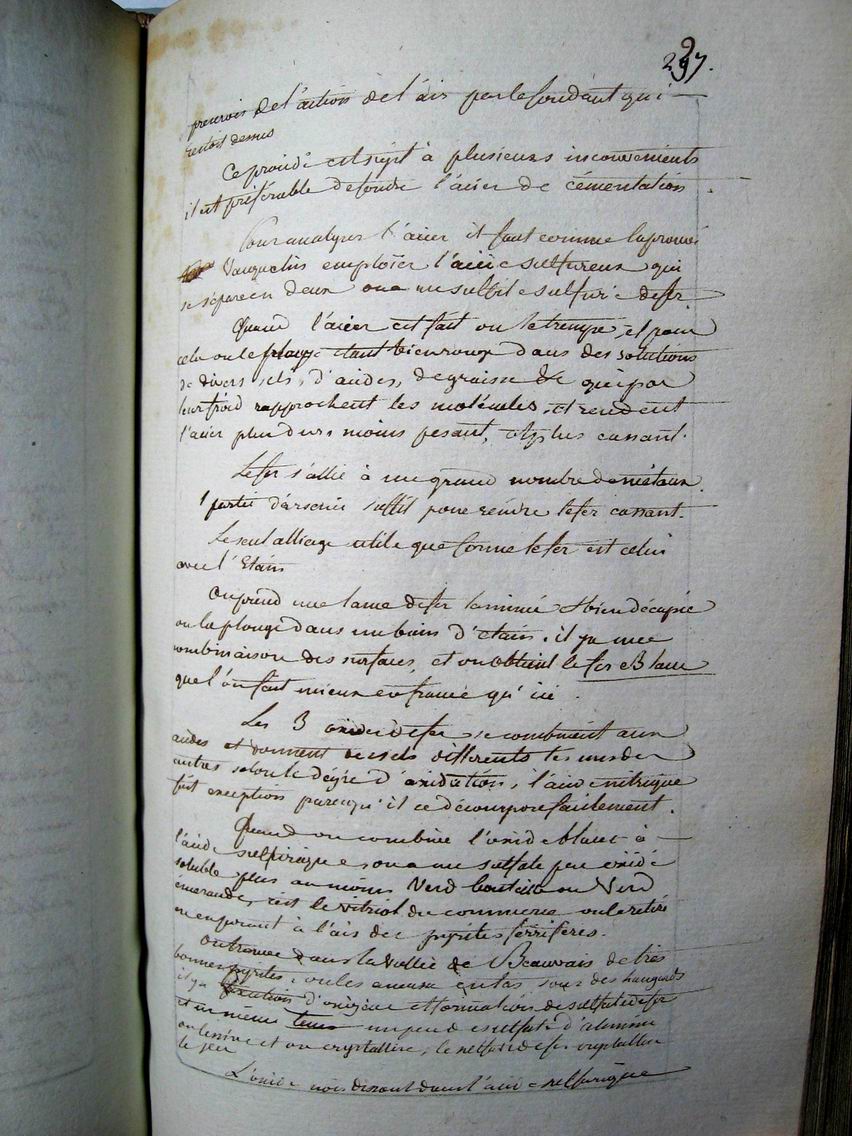 297.
preservois de l'action de l'air par le fondant qui
restoit dessus
Ce procédé est sujet à plusieurs inconvenients
il est préférable de fondre l'acier de cémentation.
Pour analyser l'acier il faut comme la prouvé
Vauquelin emploier l'acide sulfureux qui
se séparé en deux on a un sulfite sulfuré de fer.
Quand l'acier est fait on le trempe, et pour
cela on le plonge étant bien rouge dans des solutions
de divers sels, d'acides, de graisse &c qui par
leur froid rapprochent les molécules, et rendent
l'acier plus dur, moins pesant, et plus cassant.
Le fer s'allie à un grand nombre de métaux.
1 partie d'arsenic suffit pour rendre le fer cassant.
Le seul alliage utile que forme le fer est celui
avec l'Etain
On prend une lame de fer laminé et bien décapée
on la plonge dans un bain d'étain, il y a une
combinaison des surfaces, et on obtient le fer Blanc
que l'on fait mieux en france qu'ici.
Les 3 oxides de fer se combinent aux
acides et donnent des sels différents les uns des
autres selon le dégré d'oxidation, l'acide nitrique
fait exception parcequ'il se décompose facilement.
Quand on combine l'oxide blanc à
l'acide sulfurique on a un sulfate peu oxidé
soluble plus au moins Verd bouteille ou Verd
émeraude, c'est le vitriol du commerce on le retire
en exposant à l'air des pyrites ferrifères.
On trouve dans la Vallée de Beauvais de très
bonnes pyrites, on les amene en tas sous des hangards
il y a fixation d'oxigène et formation de sulfate de fer
et en meme tems un peu de sulfate d'alumine
on lessive et on crystallise, le sulfate de fer crystallise
le
L'oxide noir dissout dans l'acide sulfurique